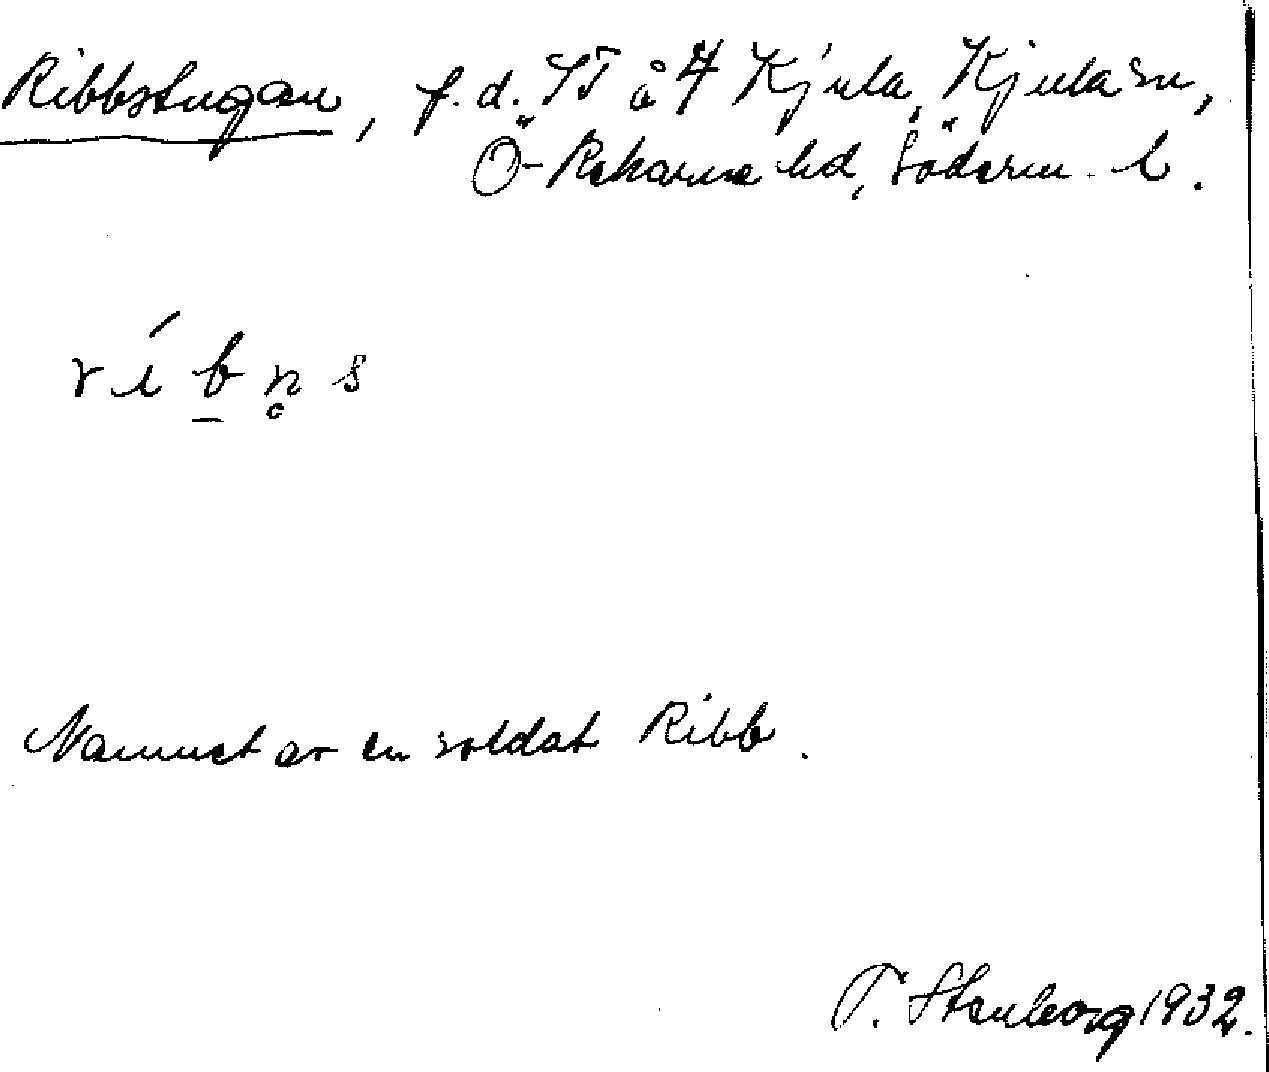 Ribbstugan, f.d. ST å 4 Kjula, Kjula sn,
Ö-Rekarne hd, Söderm. l.
ríb̲n̥s
Namnet av en soldat Ribb.
T. Stenborg 1932.